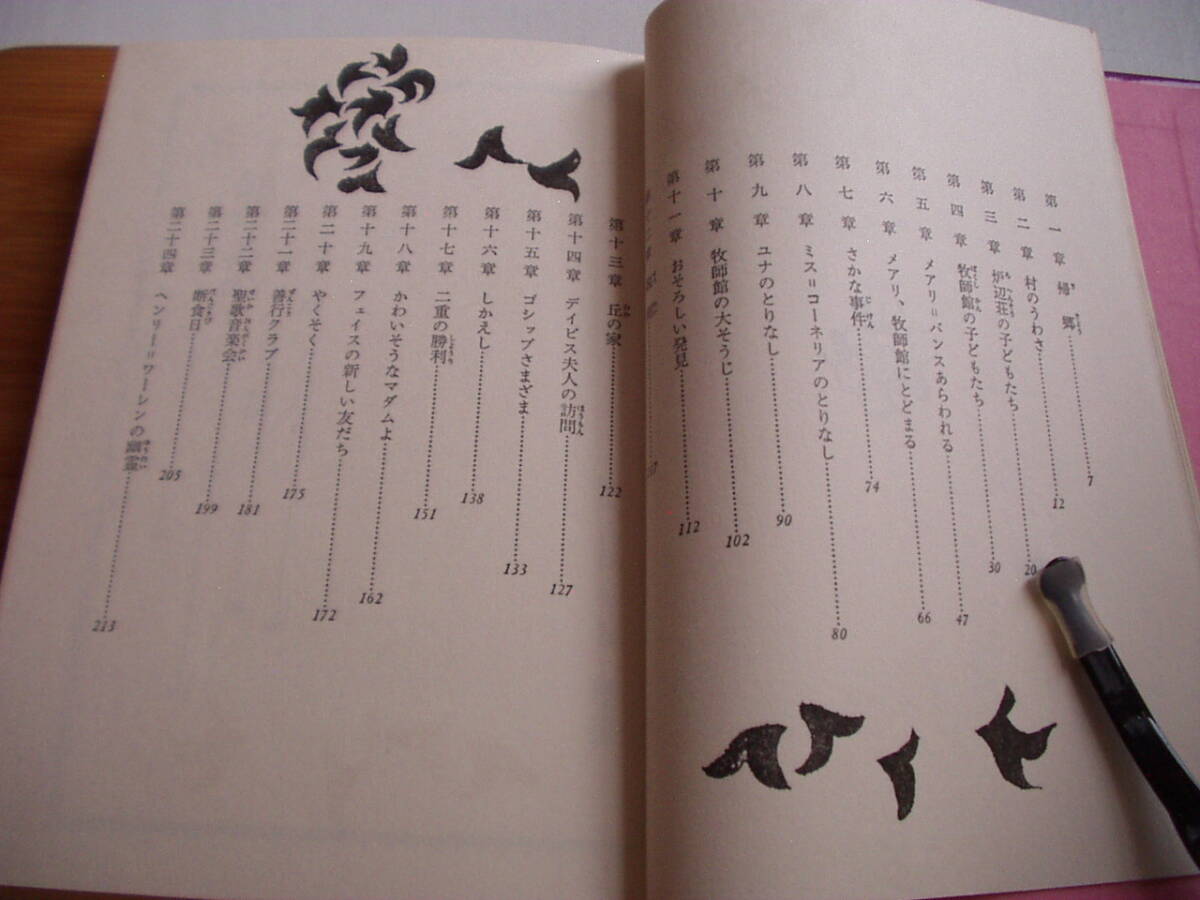 第一章 帰郷 7
第二章 村のうわさ 12
第三章 炉辺荘の子どもたち 20
第四章 牧師館の子どもたち 30
第五章 メアリ＝バンスあらわれる 47
第六章 メアリ、牧師館にとどまる 66
第七章 さかな事件 74
第八章 ミス＝コーネリアのとりなし 80
第九章 ユナのとりなし 90
第十章 牧師館の大そうじ 102
第十一章 おそろしい発見 112
第十三章 丘の家 122
第十四章 デイビス夫人の訪問 127
第十五章 ゴシップさまざま 133
第十六章 しかえし 138
第十七章 二重の勝利 151
第十八章 かわいそうなマダムよ 162
第十九章 フェイスの新しい友だち 172
第二十章 やくそく 175
第二十一章 善行クラブ 181
第二十二章 聖歌音楽会 199
第二十三章 断食日 205
第二十四章 ヘンリー＝ワーレンの幽霊 213